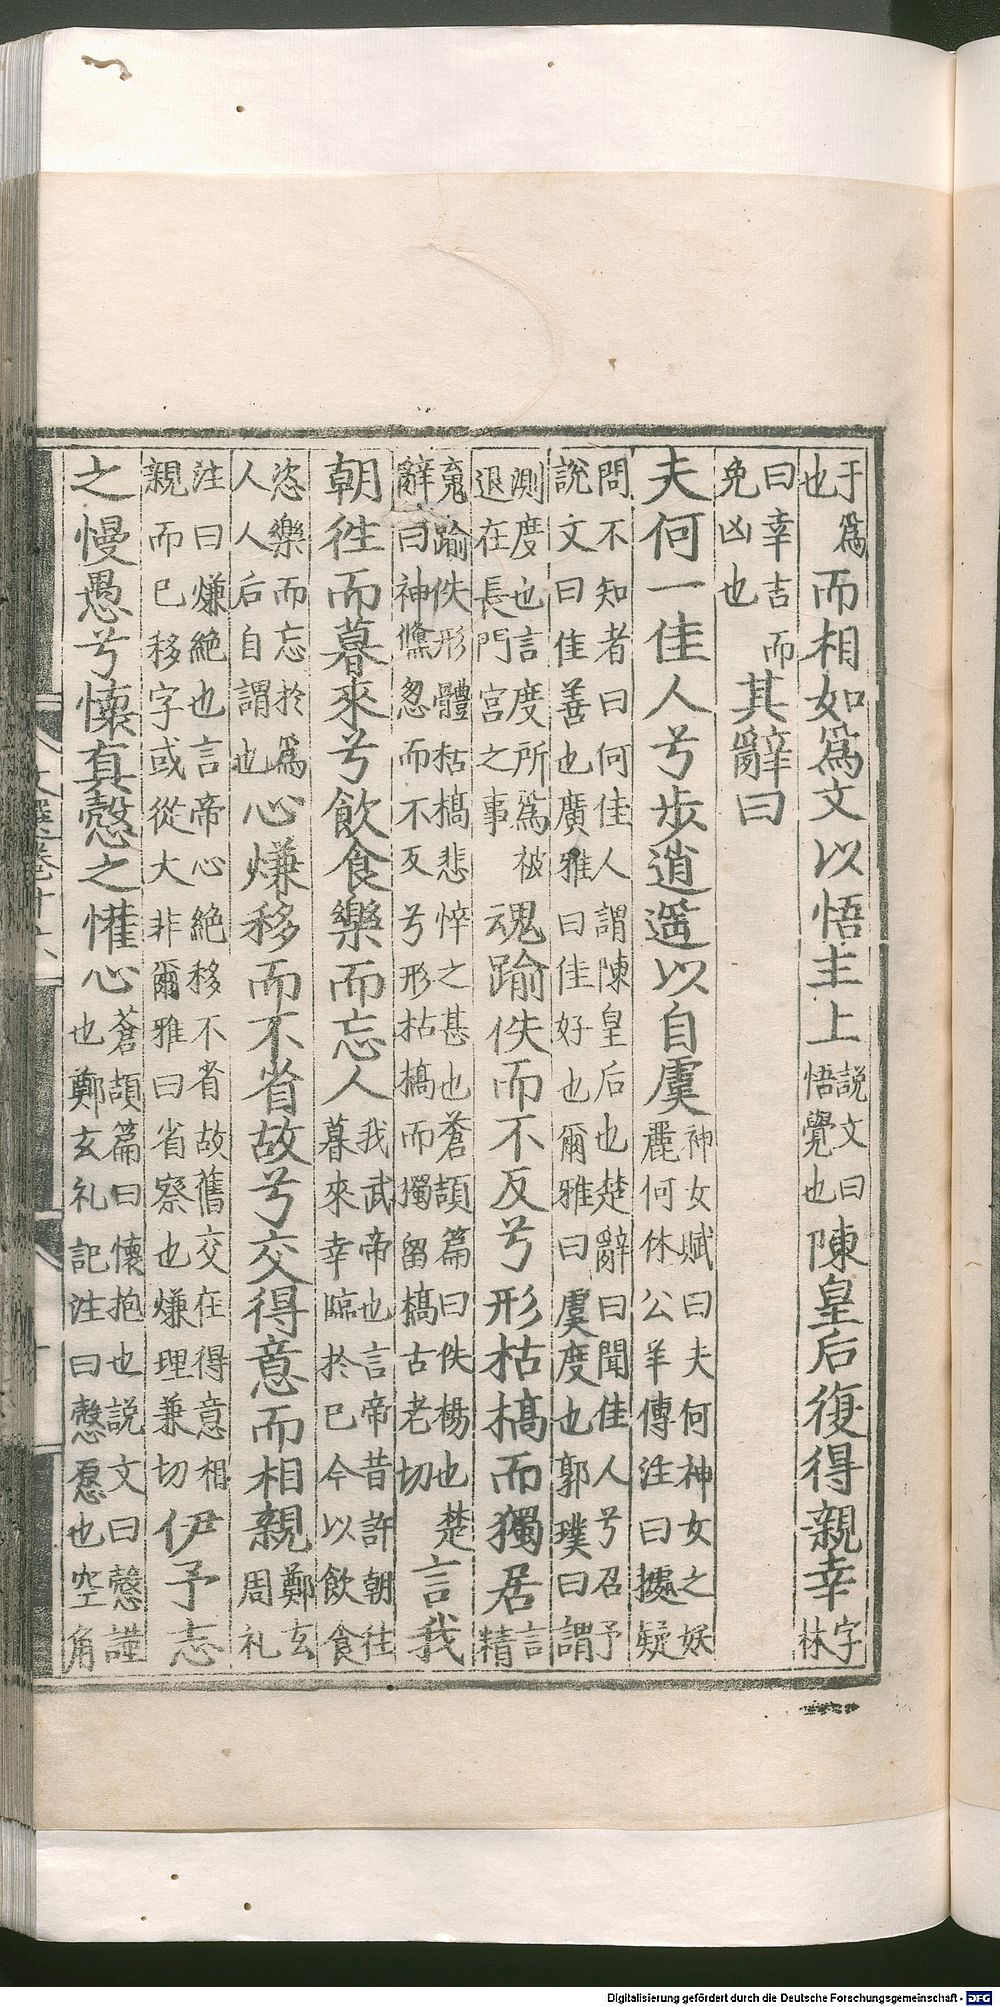 于爲也而相如爲文以悟主上說文曰悟覺也陳皇后復得親幸字林
曰幸吉而免凶也其辭曰
夫何一佳人兮步逍遥以自虞神女賦曰夫何神女之妖麗何休公羊傳注曰據疑
問不知者曰何佳人謂陳皇后也楚辭曰聞佳人兮召予說文曰佳善也廣雅曰佳好也爾雅曰虞度也郭璞曰謂
測度也言度所爲被退在長門宫之事魂踰佚而不反兮形枯槁而獨居言精
䰟踰佚形體枯槁悲悴之甚也蒼頡篇曰佚楊也楚辭曰神儵忽而不反兮形枯槁而獨留槁古老切言我
朝徃而暮來兮飲食樂而忘人我武帝也言帝昔許朝往暮來幸臨於已今以飲食
恣樂而忘於爲人人后自謂也心慊移而不省故兮交得意而相親鄭玄周礼
注曰慊絶也言帝心絶移不省故舊交在得意相親而巳移字或從大非爾雅曰省察也慊理兼切伊予志
之慢愚兮懷真慤之懽心蒼頡篇曰懷抱也說文曰慤謹也鄭玄礼記注曰慤愿也空角
文選卷十六
Digitalisierung gefördert durch die Deutsche Forschungsgemeinschaft - DFG